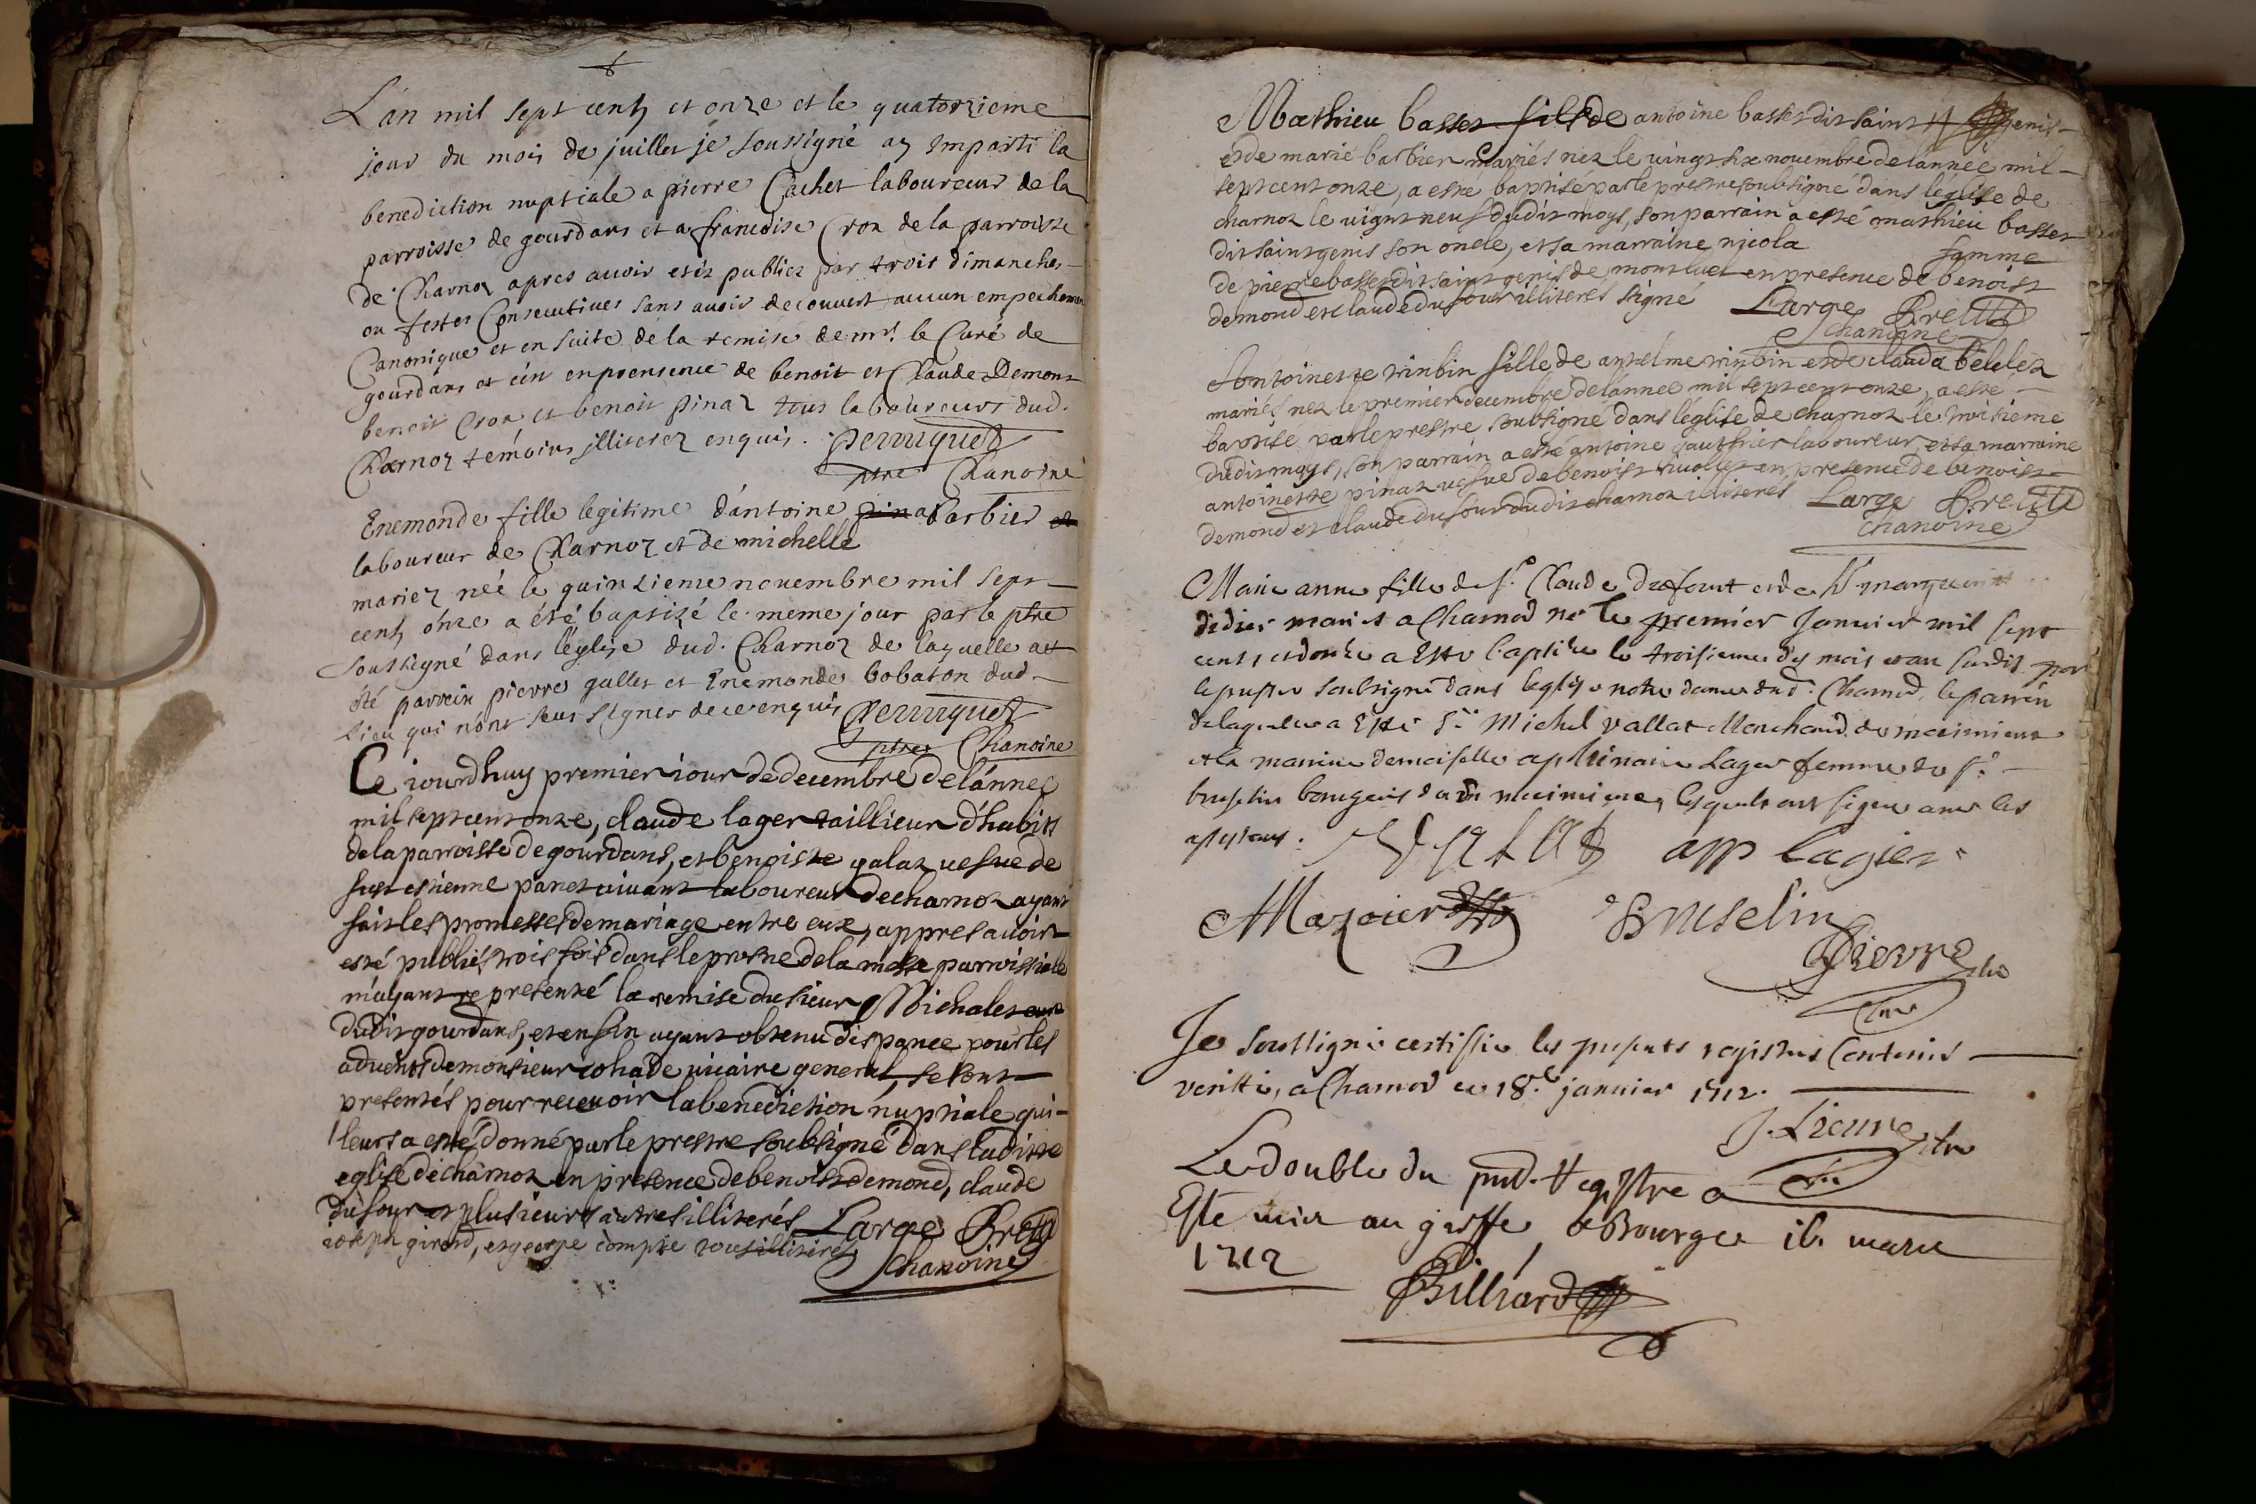 L'an mil sept cents et onze et le quatorzieme
jour du mois de juillet je soussigné ay Imparti la
benediction nuptiale a pierre Cachet laboureur de la
parroisse de gourdans et a francoise Croz de la parroisse
de Charnoz apres avoir estéz publiez par trois dimanches
ou festes Consecutives sans avoir decouvert aucun empechement
Canonique et en suite de la remise de mr. le Curé de
gourdans et en presence de benoit et Claude Demont
benoit Croz et benoit pinaz tous laboureurs dud.
Charnoz témoins illiterez enquis. Perruquet
ptre Chanoine
Enemonde fille legitime d'antoine pinaz barbier et
laboureur de Charnoz et de michelle
mariez née le quinzieme novembre mil sept
cents onze a été baptizé le meme jour par le ptre
soussigné dans l'église dud. Charnoz de laquelle a
été parrain pierre gallet et Enemonde bobaton dud.
lieu qui n'ont seus signer de ce enquis Perruquet
ptre Chanoine
Ce jourdhuy premier jour de decembre de lánnee
mil sept cent onze, claude lager taillieur d'habits
de la parroisse de gourdans, et benoiste galaz vefve de
feu estienne panet vivant laboureur de charnoz ayant
fait les promesses de mariage entre eux, appres avoir
esté publiés trois fois dans le prosne de la messe parroissiale
m'ayant representé la remise du sieur Michalet curé
dudit gourdans, et enfin ayant obtenu dispance pour les
advents de monsieur cohade vicaire general, se sont
presentés pour recevoir la benediction nuptiale qui
leurs a esté donné par le prestre soubsigné dans ladite
eglise de charnoz en presence de benoist demond, claude
dufour et plusieurs autres illiterés Large Bretti
joseph girard, et george compte tous illiterés
Chanoine
Mathieu basset fils de antoine basset dit saint genis
et de marie barbier mariés nez le vingt six novembre de lánnée mil
sept cent onze, a esté baptisé par le prestre soubsigné dans leglise de
charnoz le vignt neuf dudit moys, son parrain a esté mathieu basset
dit saint genis son oncle, et sa marraine nicola
famme
de pierre basset dit saint genis de montluel en presence de benoist
demond et claude dufour illiterés signé Large Bretti
Chanoine
Antoinette trinbin fille de anthelme trinbin et de clauda belelez
mariés nez le premier decembre de lannee mil sept cent onze, a esté
baptisé par le prestre soubsigné dans léglise de charnoz le troisieme
dudit moys, son parrain a esté antoine gauthier laboureur et sa marraine
antoinette pinaz vefve de benoist en presence de benoist
demond et claude dufour dudit charnoz illiterés Large Bretti
Chanoine
Marie anne fille de Sr. Claude Dufourt et de
didier mariés a Charnod née le premier Janvier mil sept
cents et douze a Este baptisée le troisieme des mois et an susdit par
le prestre soubsigné dans leglise notre dame dud. Charnod, le parrin
de laquelle a Esté Sr. Michel vallat Marchand de meximieux
et la marine demoiselle aplinaire Lager femme du Sr.
bruselin bourgeois dud meximieux, lesquels ont signé avec les
app lagier
Mazoier
Bruselin
Je soussigné certiffie les presents registres Contenir
veritté, a Charnod ce 18e. janvier 1712.
Le double du pnt. Registre a
Este mis au greffe de Bourg ce
1712
Billiard